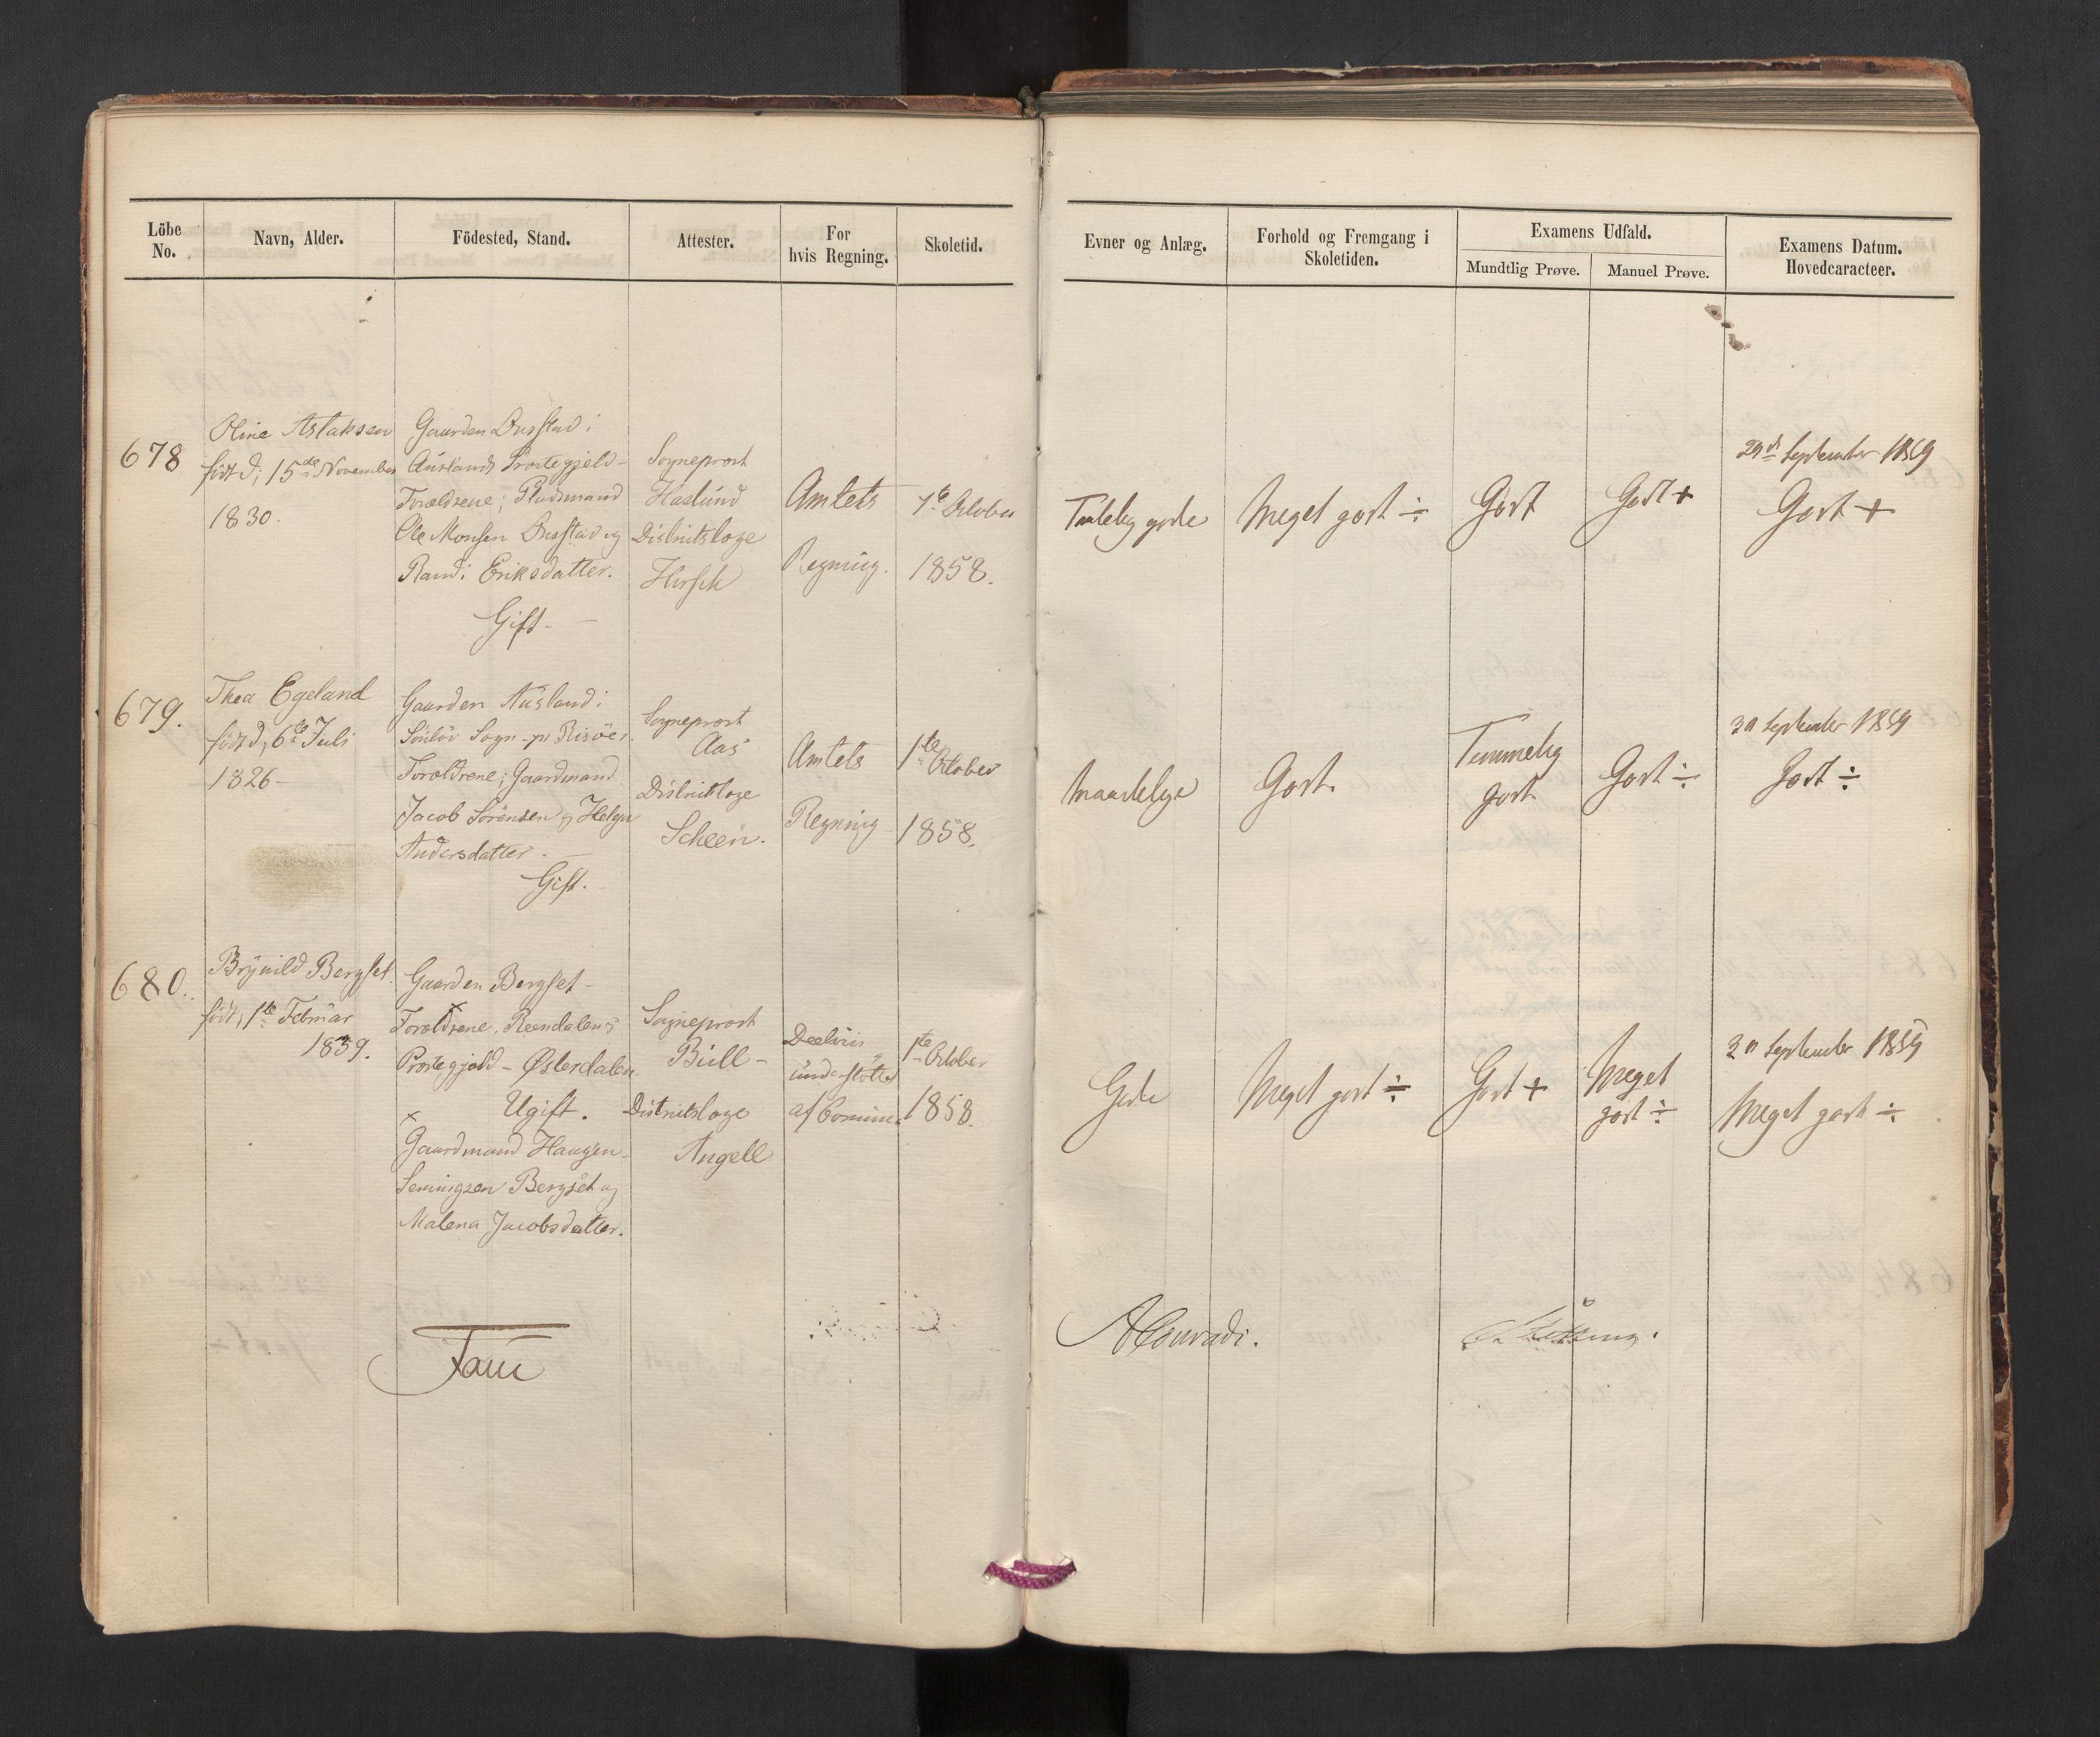 Löbe No.
Navn, Alder.
Födested, Stand.
Attester.
For hvis Regning.
Skoletid.
Evner og Anlæg.
Forhold og Fremgang i Skoletiden.
Examens Udfald.
Mundtlig Prøve.
Manuel Prøve.
Examens Datum.
Hovedcaracteer.
678
Oline Aslaksen
født d; 15de November
1830.
Gaarden i
Præstegjeld-
Forældrene;
Ole Monsen og
Randi Eriksdatter.
Gift-
Sogneprest
Haslund
Distriktslæge
Hirsch
Amtets
Regning.
1te October
1858.
Taalelig gode
Meget godt ÷
Godt
Godt +
29d September 1859
Godt +
679.
Thea Egeland
født d; 6te Juli
1826-
Gaarden Ausland i
Söndlöv Sogn pr Risöer.
Forældrene; Gaardmand
Jacob Sörensen og Helga
Andersdatter.
Gift.
Sogneprest
Aas
Distriktslæge
Scheen.
Amtets
Regning
1te October
1858.
Maadelige
Godt.
Temmelig
godt
Godt ÷
30 September 1859
Godt ÷
680.
Brynild Bergset.
født, 1te Februar
1839.
Gaarden Bergset-
x
Forældrene. Reendalens
Præstegjeld - Østerdalen
Ugift.
x
Gaardmand Haagen
Semingsen Bergset og
Malena Jacobsdatter.
Sogneprest
Bull-
Distriktslæge
Angell
Deelviis
understöttet
af Commun
1te October
1858.
Gode
Meget godt ÷
Godt +
Meget
godt ÷
30 September 1859
Meget godt ÷
Faue
AConradi.